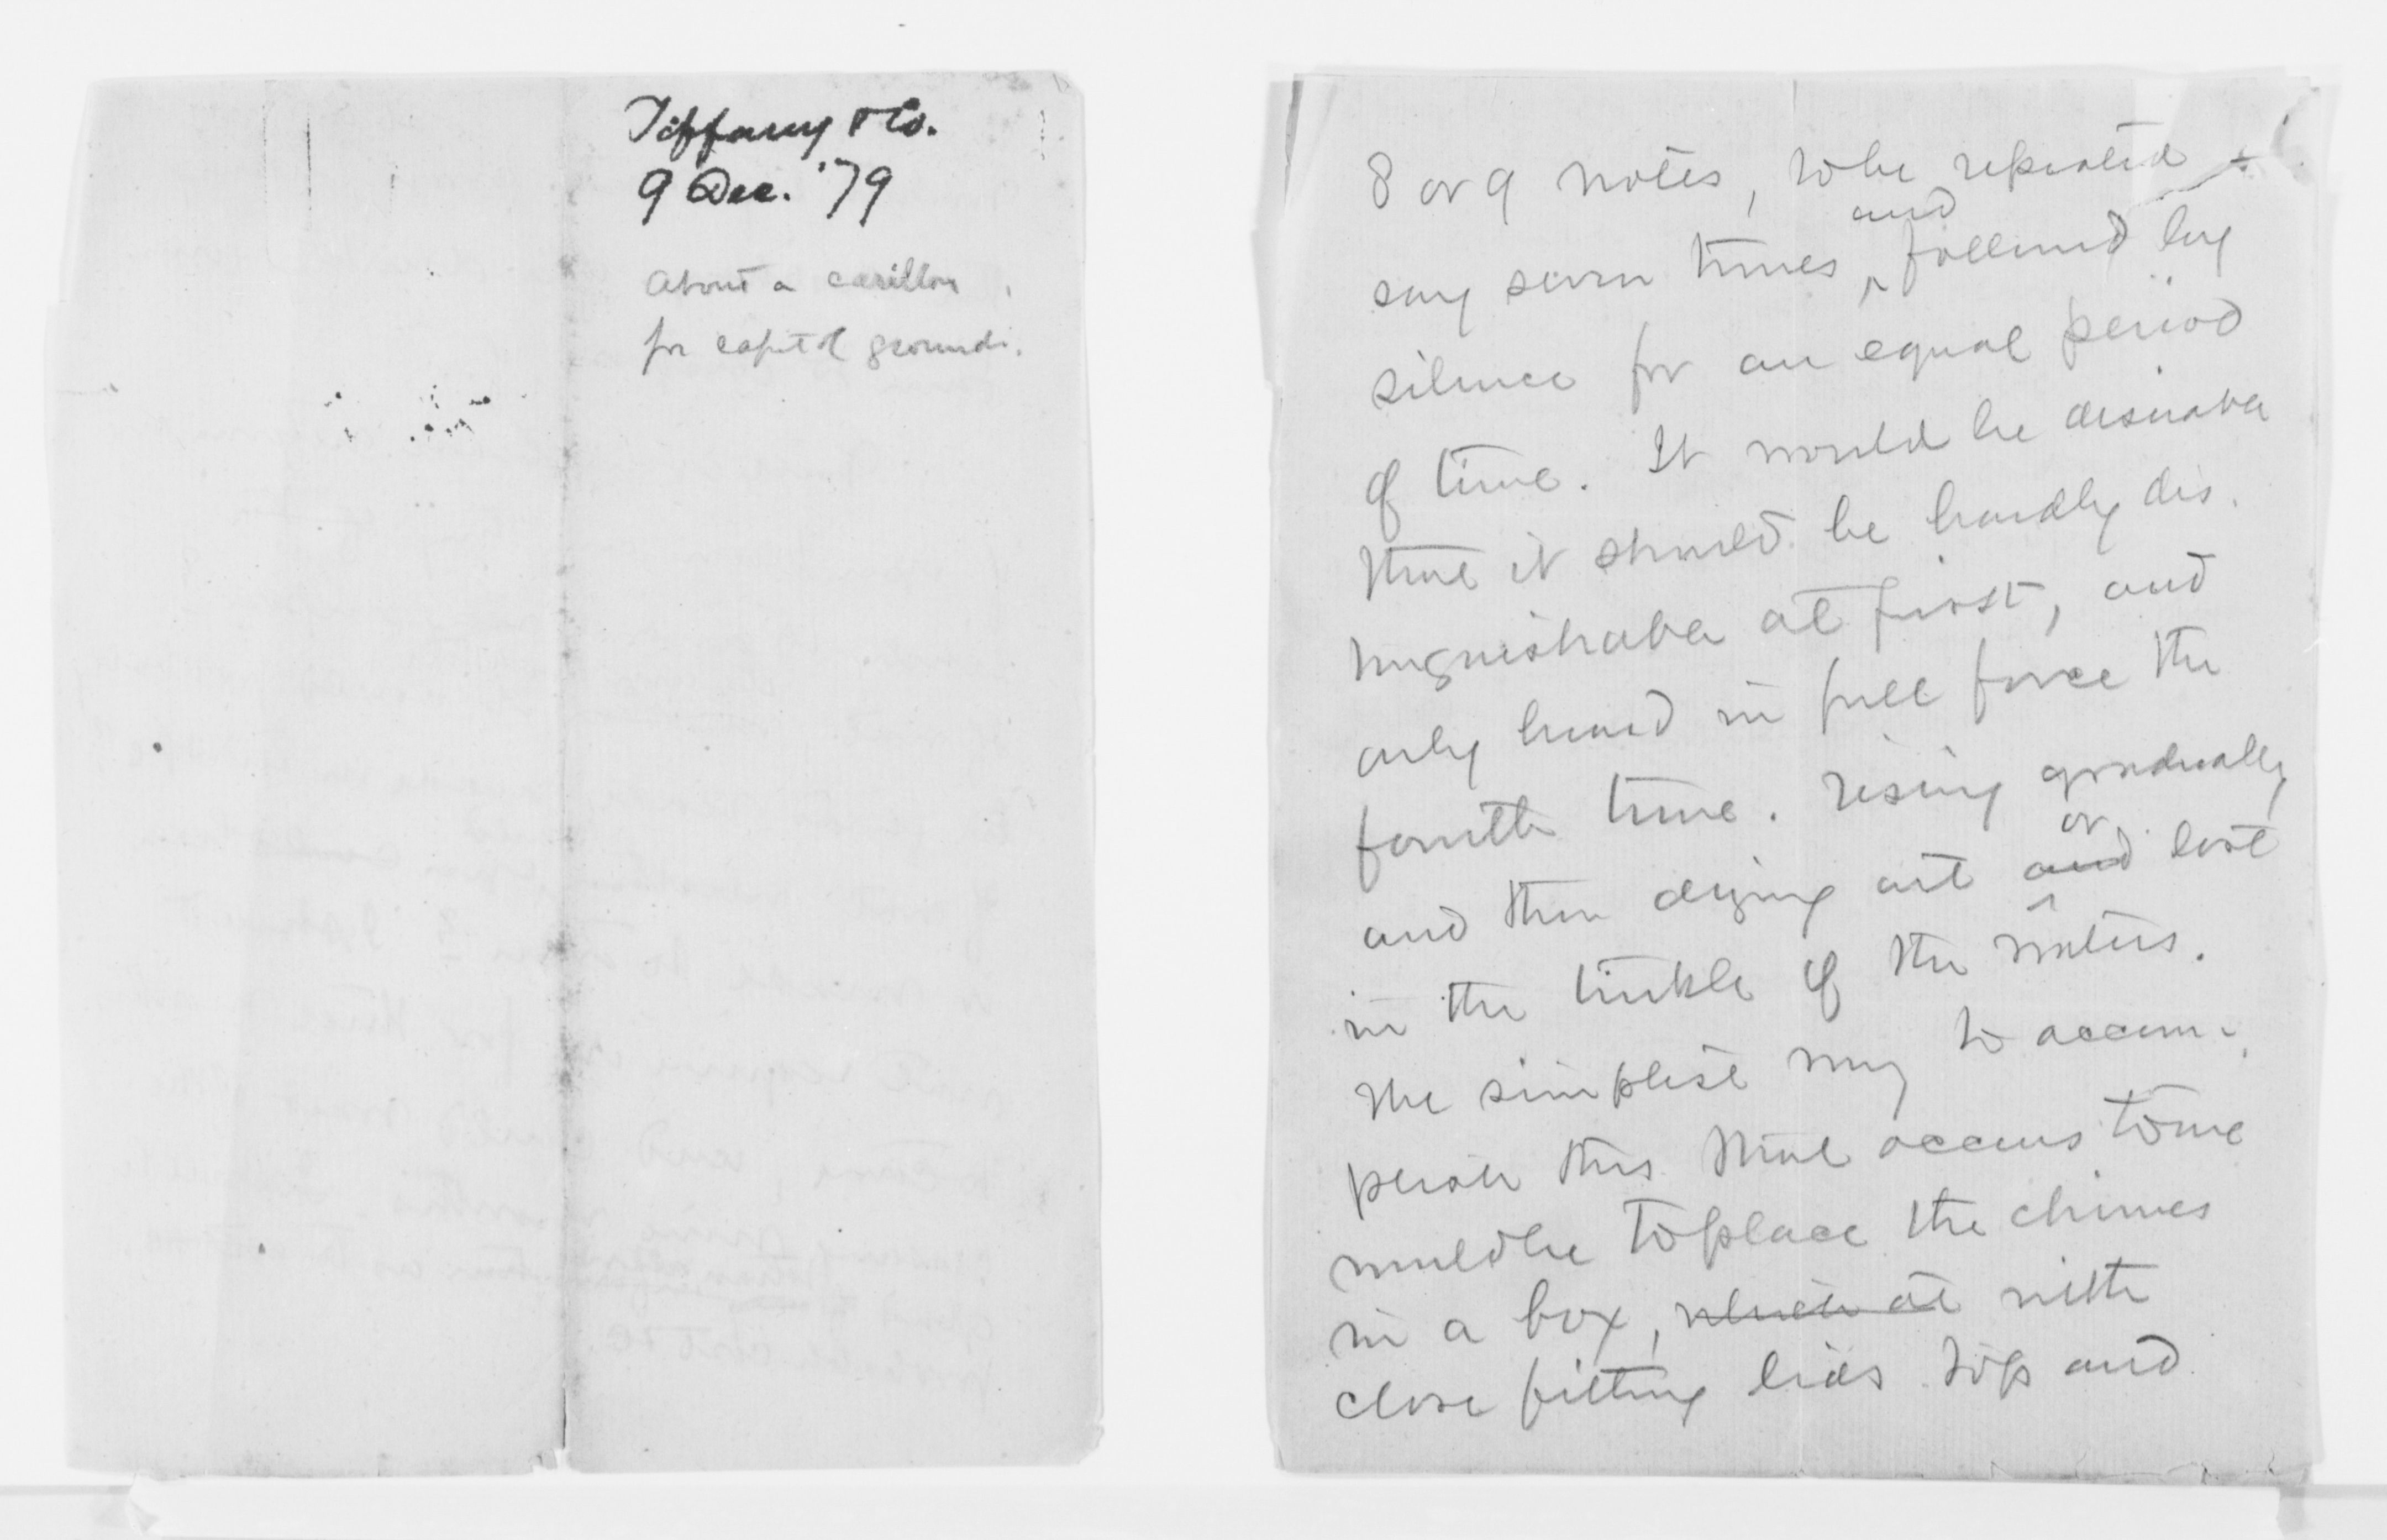 Tiffany & Co.
9 Dec. '79
About a carillon
for capitol grounds.
8 or 9 notes, to be repeated
say seven times, and followed by
silence for an equal period
of time. It would be desirable
that it should be hardly dis-
tinguishable at first, and
only heard in full force the
fourth time. rising gradually
and then dying out and or lost
in the tinkle of the waters.
The simplest way to accom-
plish this that occurs to me
would be to place the chimes
in a box, which at with
close fitting lids top and